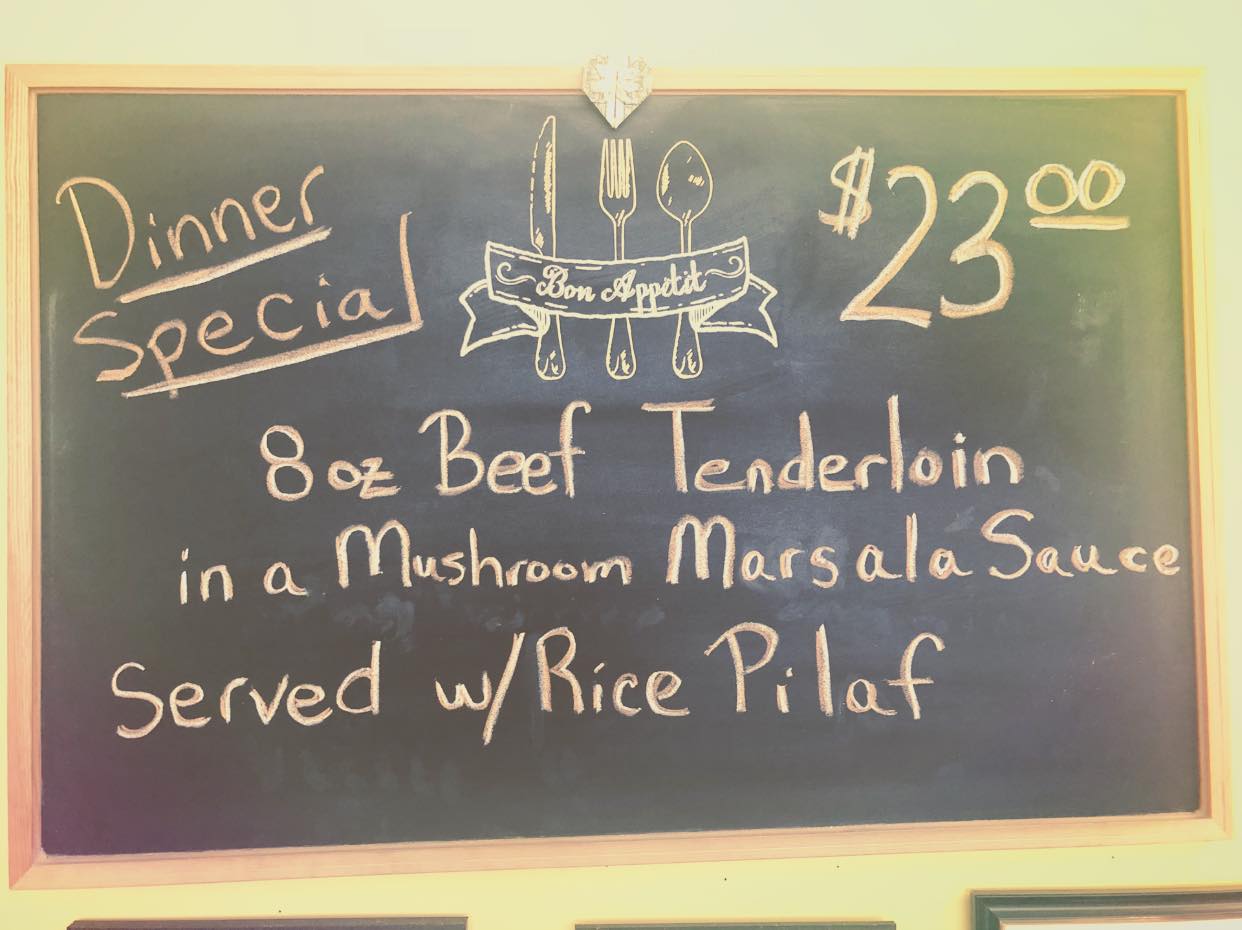 Dinner
Special
Bon Appétit
$23.00
8 oz Beef Tenderloin
in a Mushroom Marsala Sauce
Served w/ Rice Pilaf